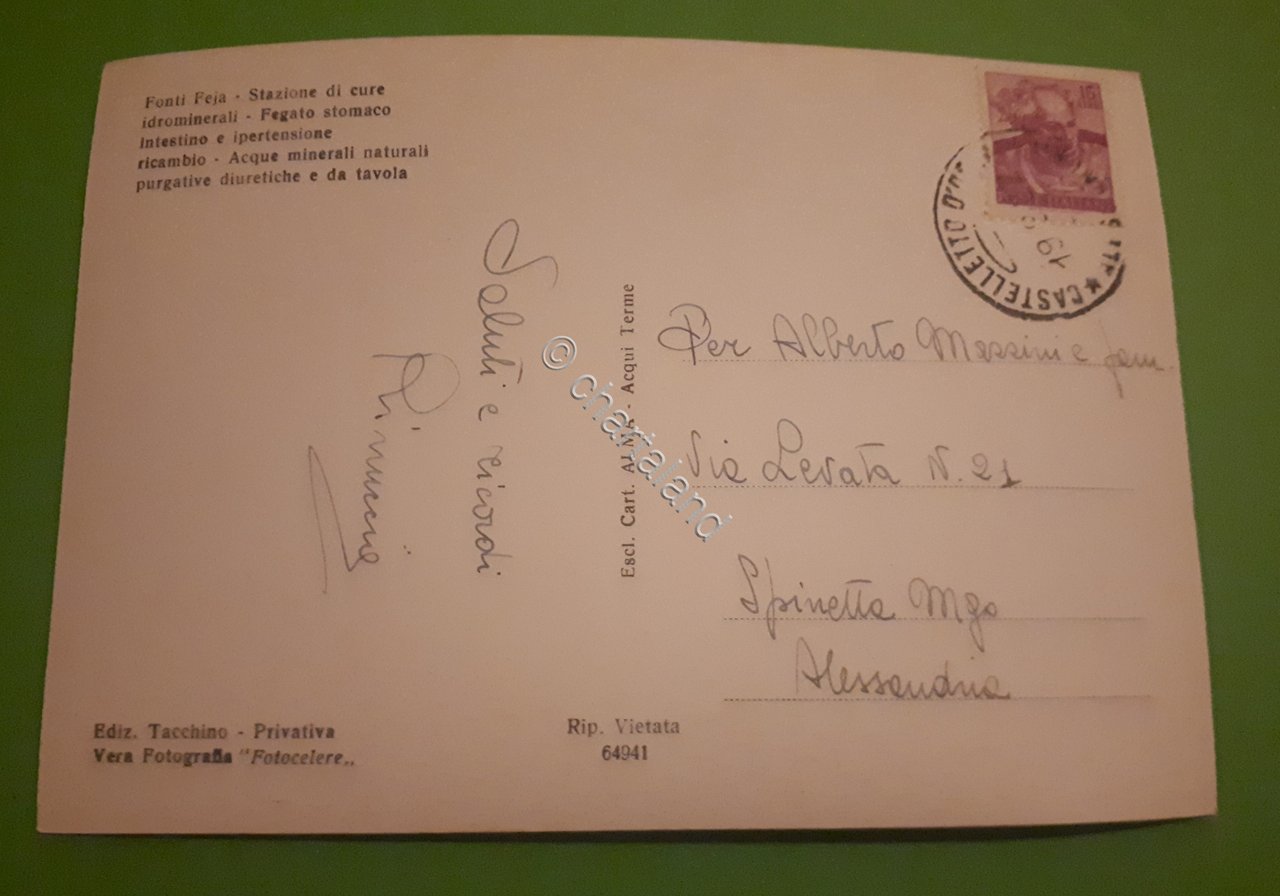 Fonti Feja - Stazione di cure
idrominerali - Fegato stomaco
intestino e ipertensione
ricambio - Acque minerali naturali
purgative diuretiche e da tavola
15
CASTELLETTO D'OR
19
Saluti e ricordi
Escl. Cart. ALMA - Acqui Terme
© chartaland
Per Alberto Massini e fam.
Via Levata N. 21
Spinetta Mgo
Alessandria
Ediz. Tacchino - Privativa
Vera Fotografia "Fotocelere„
Rip. Vietata
64941